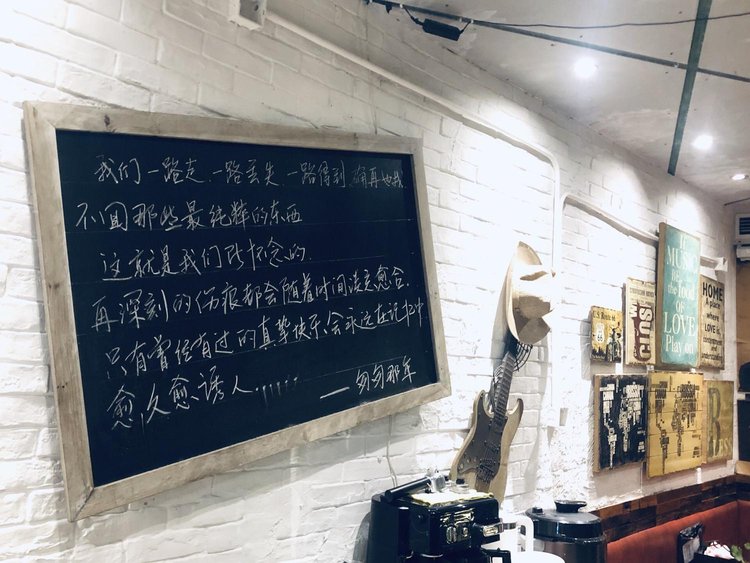 我们一路走 一路丢失 一路得到 却再也找
不回那些最纯粹的东西
这就是我们所怀念的.
再深刻的伤痕都会随着时间淡定愈合.
只有曾经有过的真挚快乐,会永远在记忆中
愈久愈诱人......
——匆匆那年
If
MUSIC
Be
the food
OF
LOVE
Play on
MUSIC
HOME
a place
where
LOVE
66